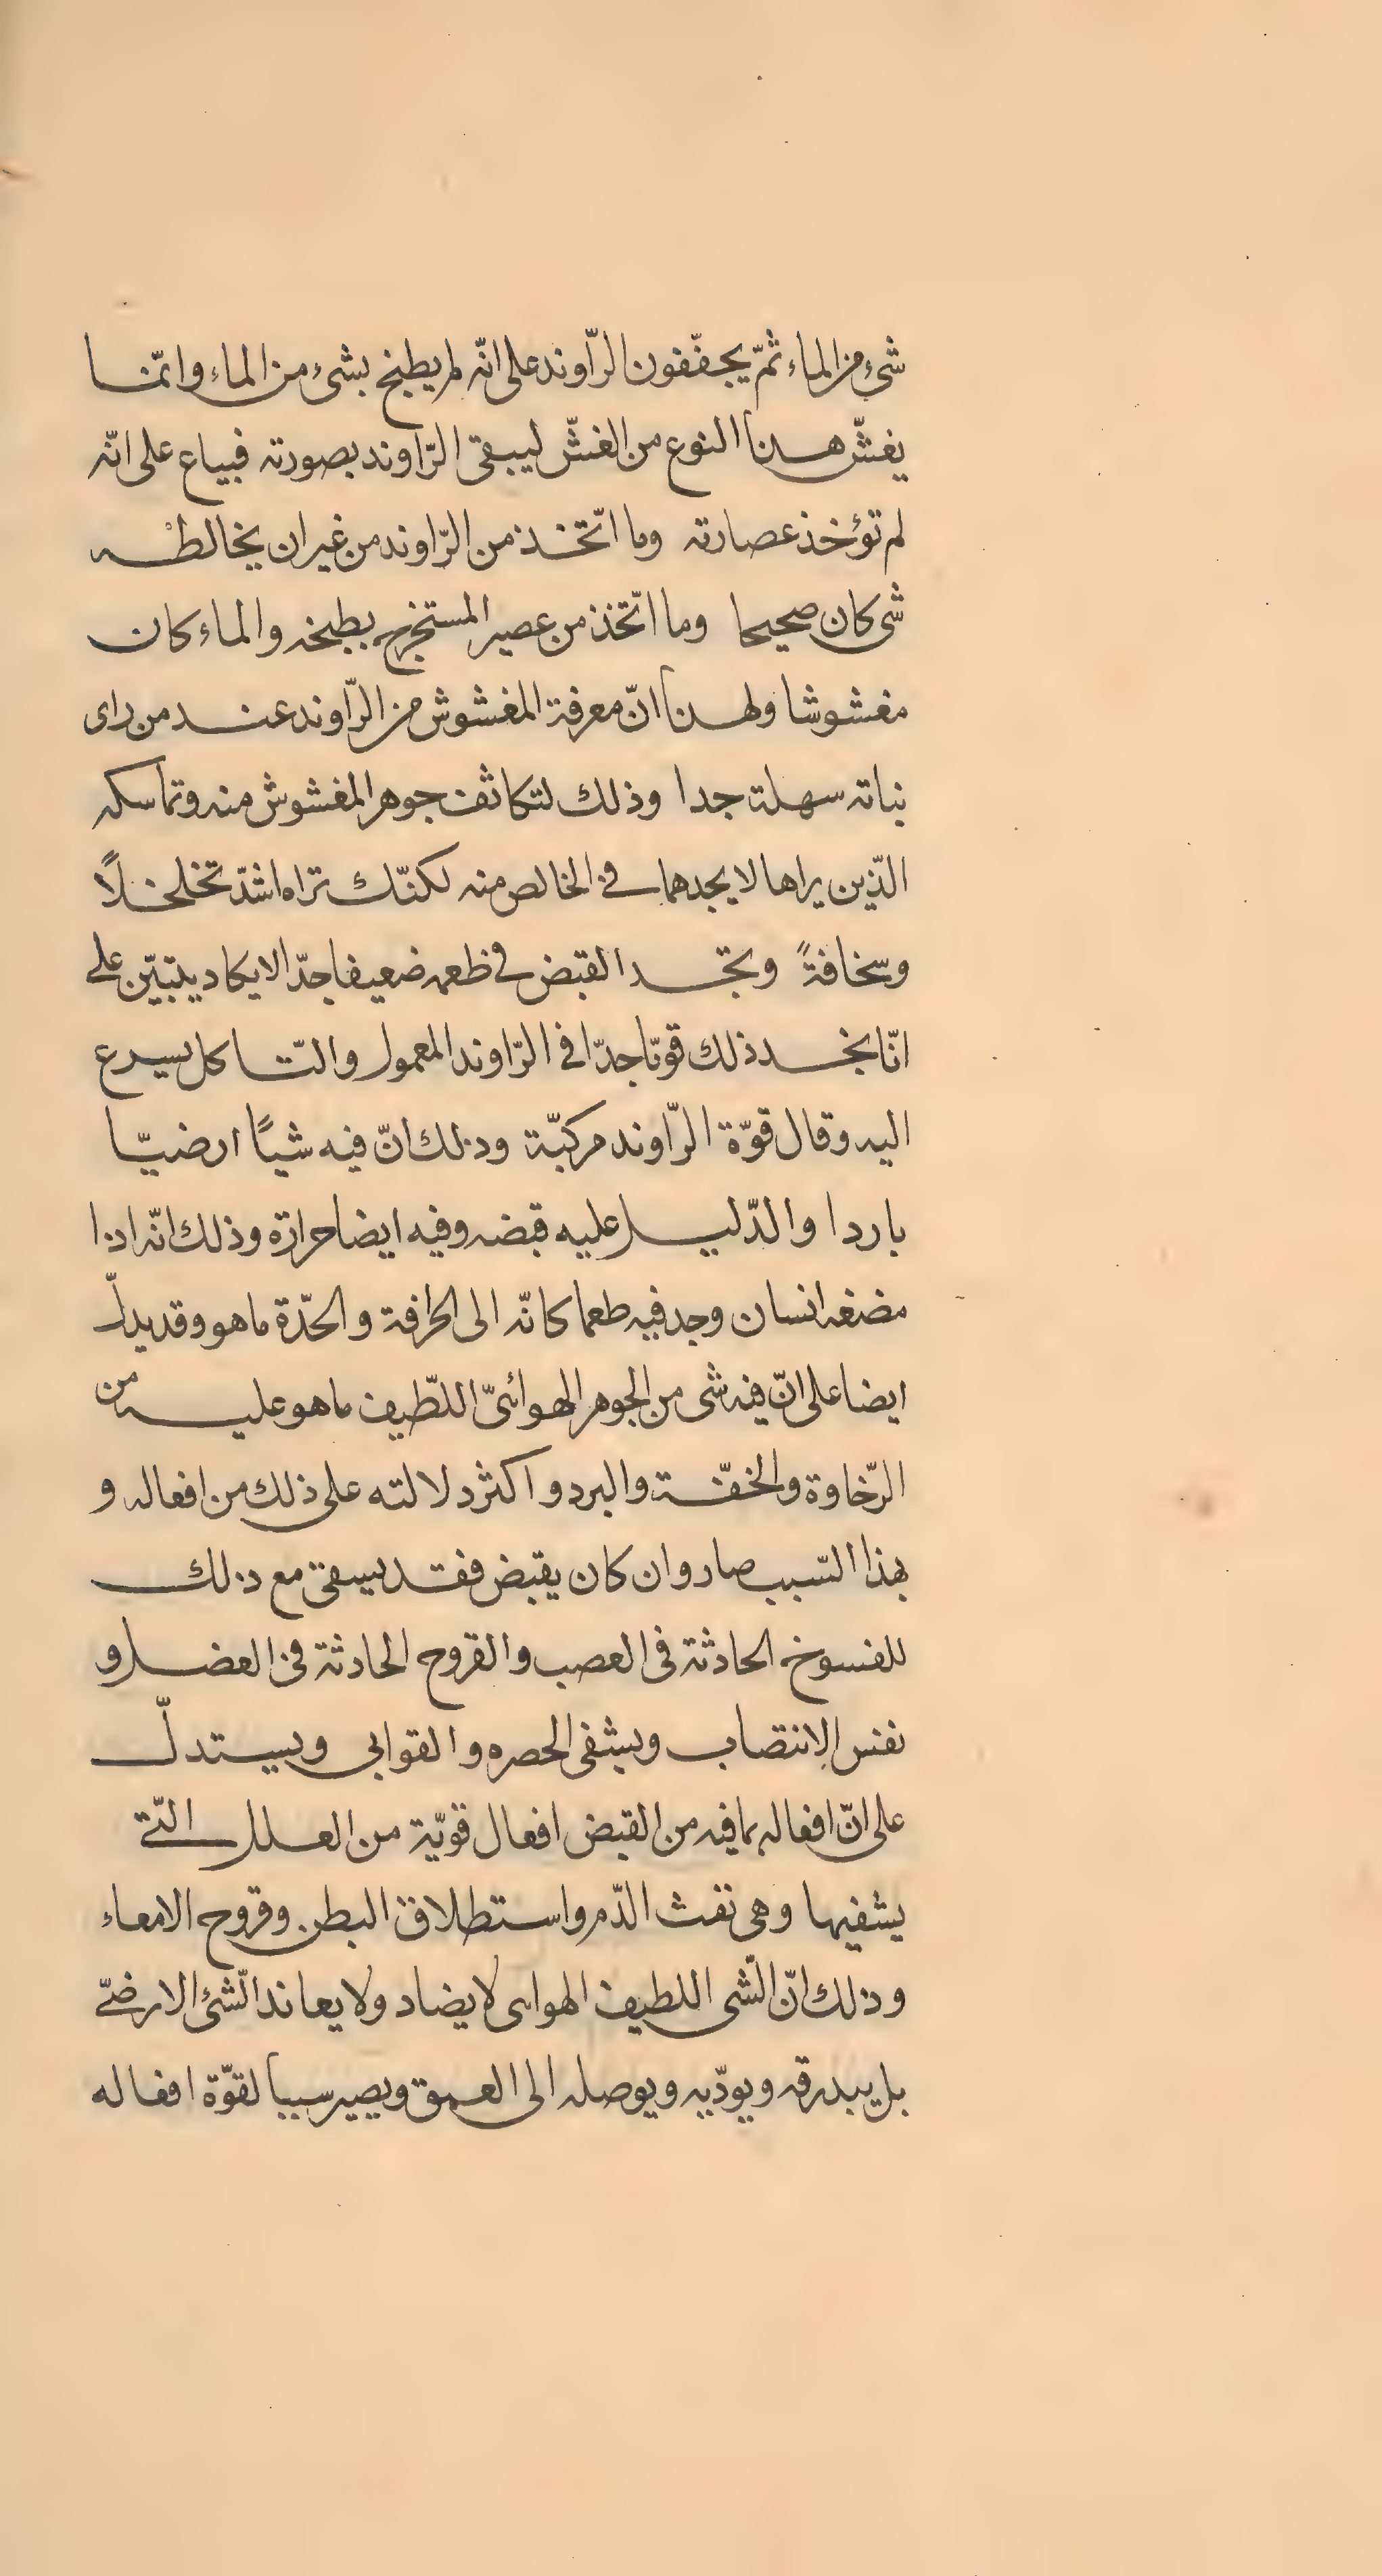 شىء من الماء ثمّ يجفّفون الرّاوند على انّه لم يطبخ بشىء من الماء وانّما
يغشّ هذا النوع من الغشّ ليبقى الرّاوند بصورته فيباع على انّه
لم تؤخذ عصارته وما اتّخذ من الرّاوند من غير ان يخالطه
شى كان صحيحا وما اتّخذ من عصير المستخرج بطبخه والماء كان
مغشوشا ولهذا انّ معرفة المغشوش من الرّاوند عند من راى
نباته سهلة جدا وذلك لتكاثف جوهر المغشوش منه وتماسكه
الذّين يراها لا يجدهما فى الخالص منه لكنّك تراه اشدّ تخلخلاً
وسخافةً وتجد القبض فى ظعمه ضعيفا جدّا لا يكاد يتبيّن على
انّا نجد ذلك قويّا جدّا فى الرّاوند المعمول والتّاكل يسرع
اليه وقال قوّة الرّاوند مركبّة وذلك انّ فيه شيًا ارضيّا
باردا والدّليل عليه قبضه وفيه ايضا حرارة وذلك انّه اذا
مضغه انسان وجد فيه طعما كانّه الى الحرافة والحدّة ما هو وقد يدلّ
ايضا على انّ فيه شى من الجوهر الهوائىّ اللّطيف ما هو عليه من
الرّخاوة والخفّة والبرد واكثر دلالته على ذلك من افعاله و
بهذا السّبب صار وان كان يقبض فقد يسقى مع ذلك
للفسوخ الحادثة فى العصب والقروح الحادثة فى العضل و
نفس الانتصاب ويشفى الحصره والقوابى ويستدلّ
على انّ افعاله بما فيه من القبض افعال قويّة من العلل التّى
يشفيها وهى نفث الدّم واستطلاق البطن وقروح الامعاء
وذلك انّ الشّى اللطيف الهواىى لا يضاد ولا يعاند الشّىء الارضىّ
بل يبدرقه ويودّيه ويوصله الى العمق ويصير سببا لقوّة افعاله